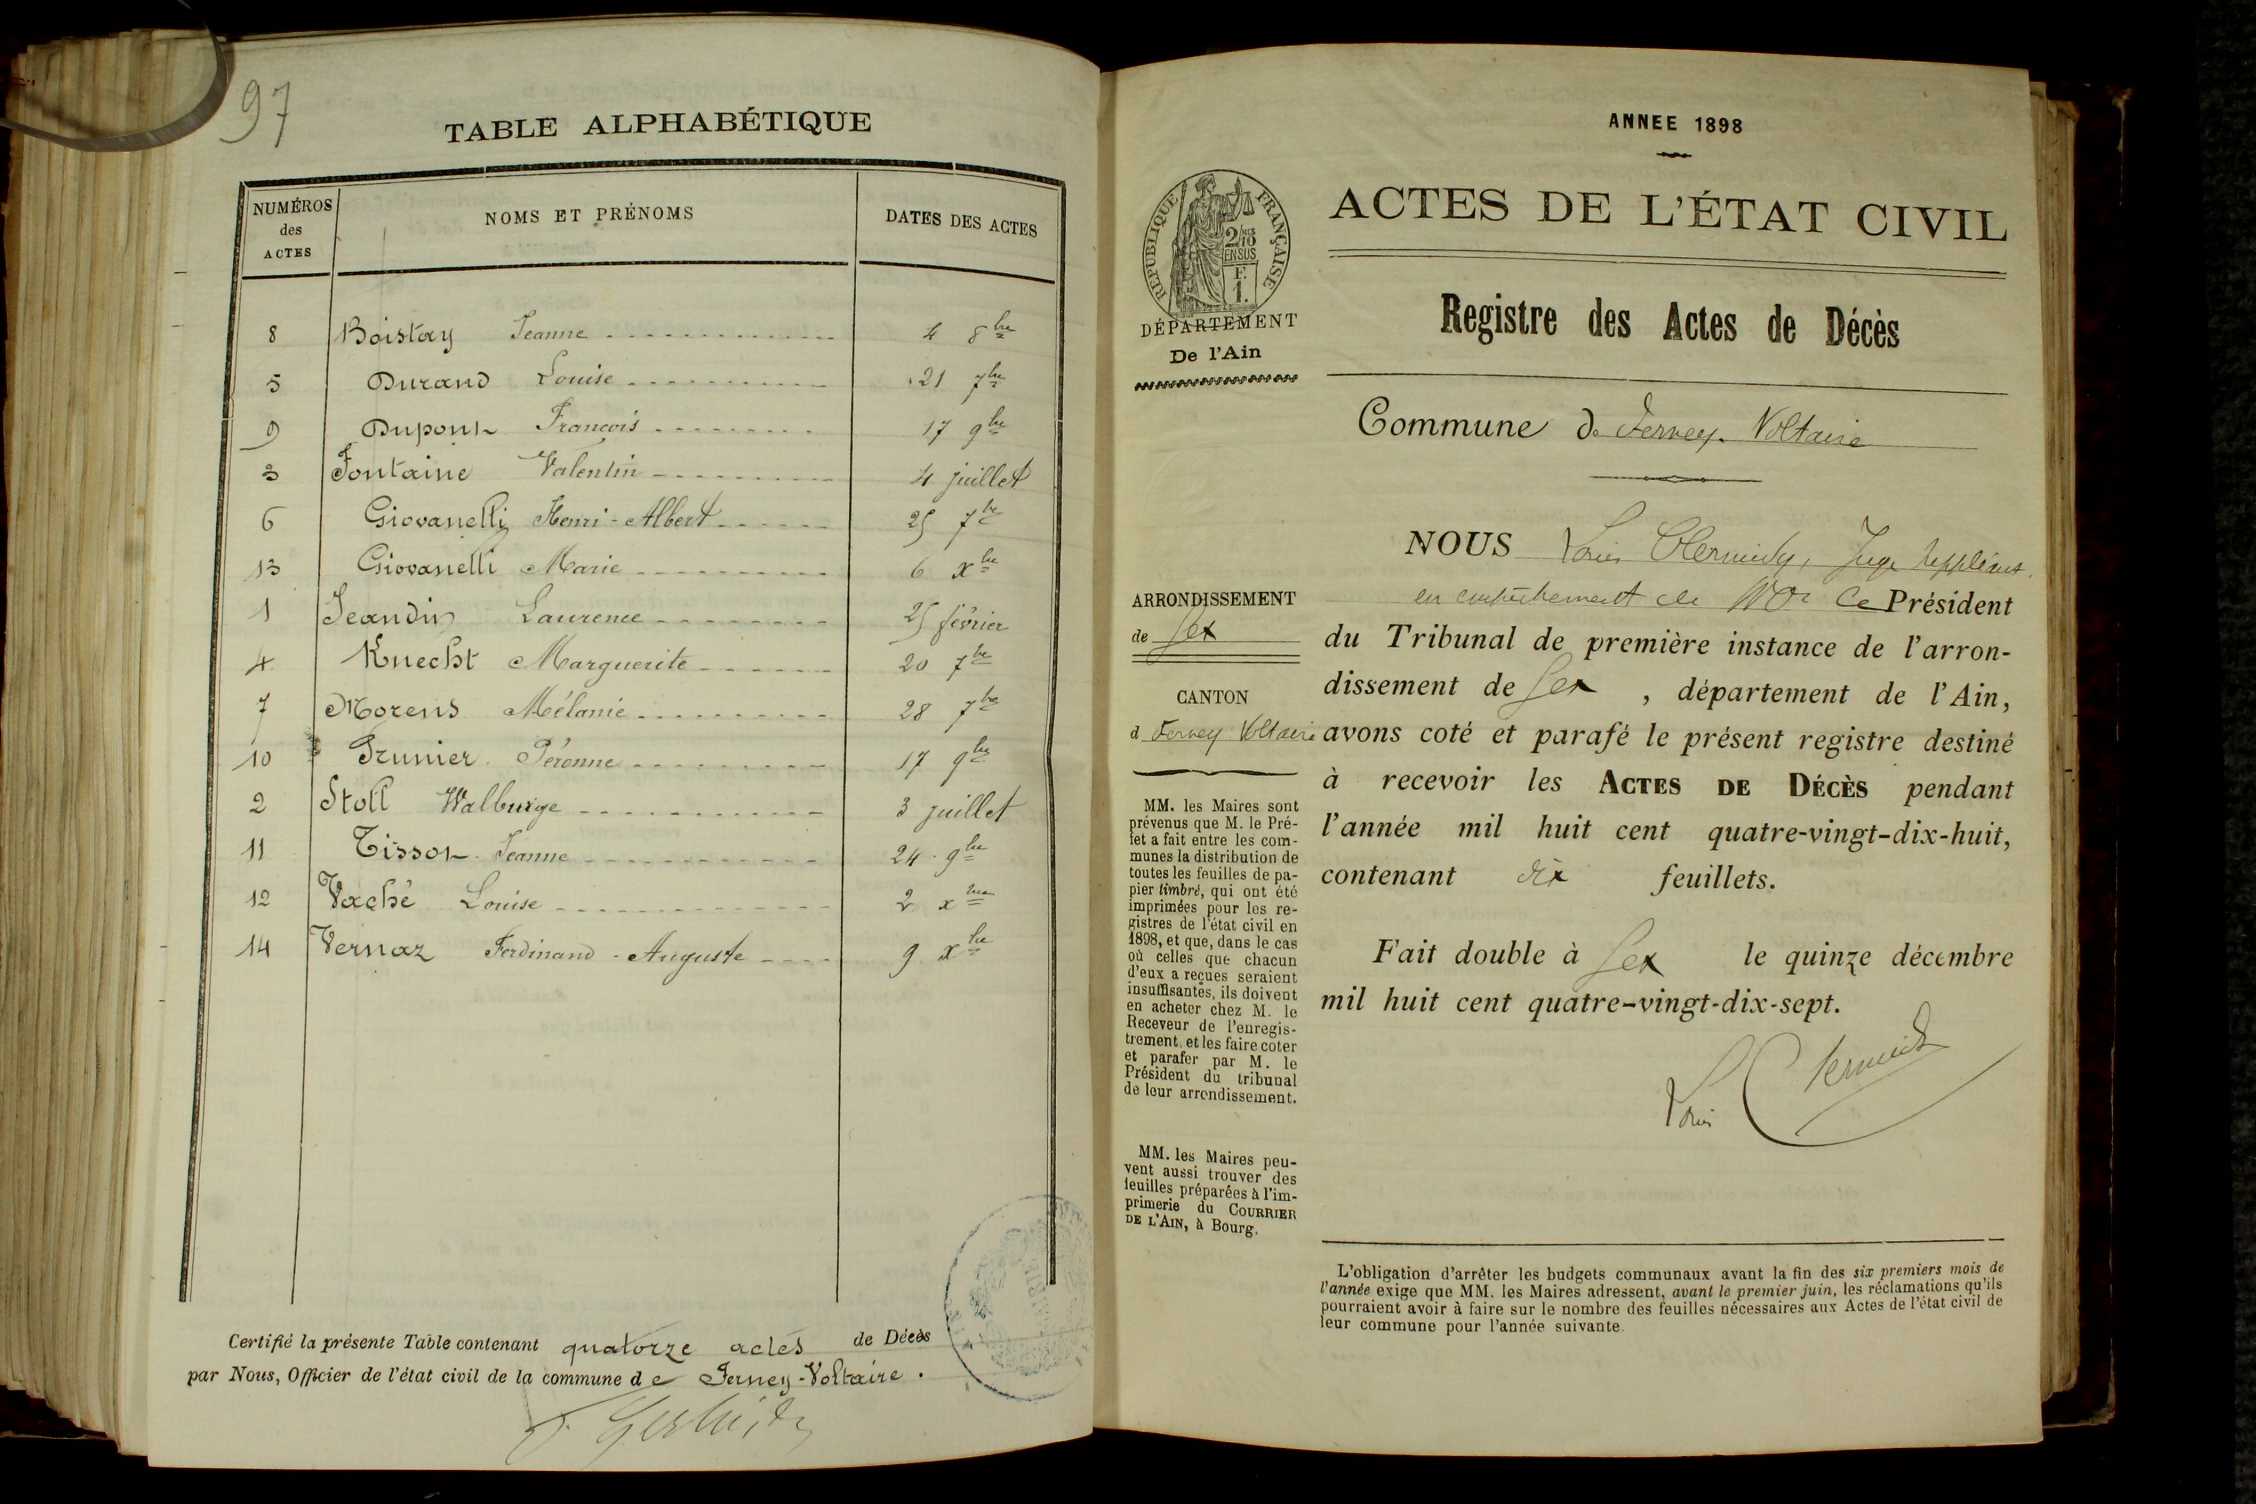 97
TABLE ALPHABÉTIQUE
NUMÉROS des ACTES
NOMS ET PRÉNOMS
DATES DES ACTES
8 Boistay Jeanne 4 8bre
5 Durand Louise 21 7bre
9 Dupont François 17 9bre
3 Fontaine Valentin 4 juillet
6 Giovanelli Henri-Albert 25 7bre
13 Giovanelli Marie 6 xbre
1 Jeandin Laurence 25 février
4 Knecht Marguerite 20 7bre
7 Morens Mélanie 28 7bre
10 Prunier Péronne 17 9bre
2 Stoll Walburge 3 juillet
11 Tissot Jeanne 24 9bre
12 Vaché Louise 2 xbre
14 Vernaz Ferdinand-Auguste 9 xbre
Certifié la présente Table contenant quatorze actes de Décès
par Nous, Officier de l'état civil de la commune de Ferney-Voltaire.
ANNEE 1898
ACTES DE L'ÉTAT CIVIL
RÉPUBLIQUE FRANÇAISE
2/10 EN SUS
F.
1.
DÉPARTEMENT
De l'Ain
Registre des Actes de Décès
Commune de Ferney-Voltaire
ARRONDISSEMENT
de Gex
CANTON
d Ferney Voltaire
MM. les Maires sont
prévenus que M. le Pré-
fet a fait entre les com-
munes la distribution de
toutes les feuilles de pa-
pier timbré, qui ont été
imprimées pour les re-
gistres de l'état civil en
1898, et que, dans le cas
où celles que chacun
d'eux a reçues seraient
insuffisantes, ils doivent
en acheter chez M. le
Receveur de l'enregis-
trement, et les faire coter
et parafer par M. le
Président du tribunal
de leur arrondissement.
MM. les Maires peu-
vent aussi trouver des
feuilles préparées à l'im-
primerie du COURRIER
DE L'AIN, à Bourg.
NOUS Louis Juge suppléant
en empêchement de Mr le Président
du Tribunal de première instance de l'arron-
dissement de Gex, département de l'Ain,
avons coté et parafé le présent registre destiné
à recevoir les ACTES DE DÉCÈS pendant
l'année mil huit cent quatre-vingt-dix-huit,
contenant dix feuillets.
Fait double à Gex le quinze décembre
mil huit cent quatre-vingt-dix-sept.
Louis
L'obligation d'arrêter les budgets communaux avant la fin des six premiers mois de
l'année exige que MM. les Maires adressent, avant le premier juin, les réclamations qu'ils
pourraient avoir à faire sur le nombre des feuilles nécessaires aux Actes de l'état civil de
leur commune pour l'année suivante.